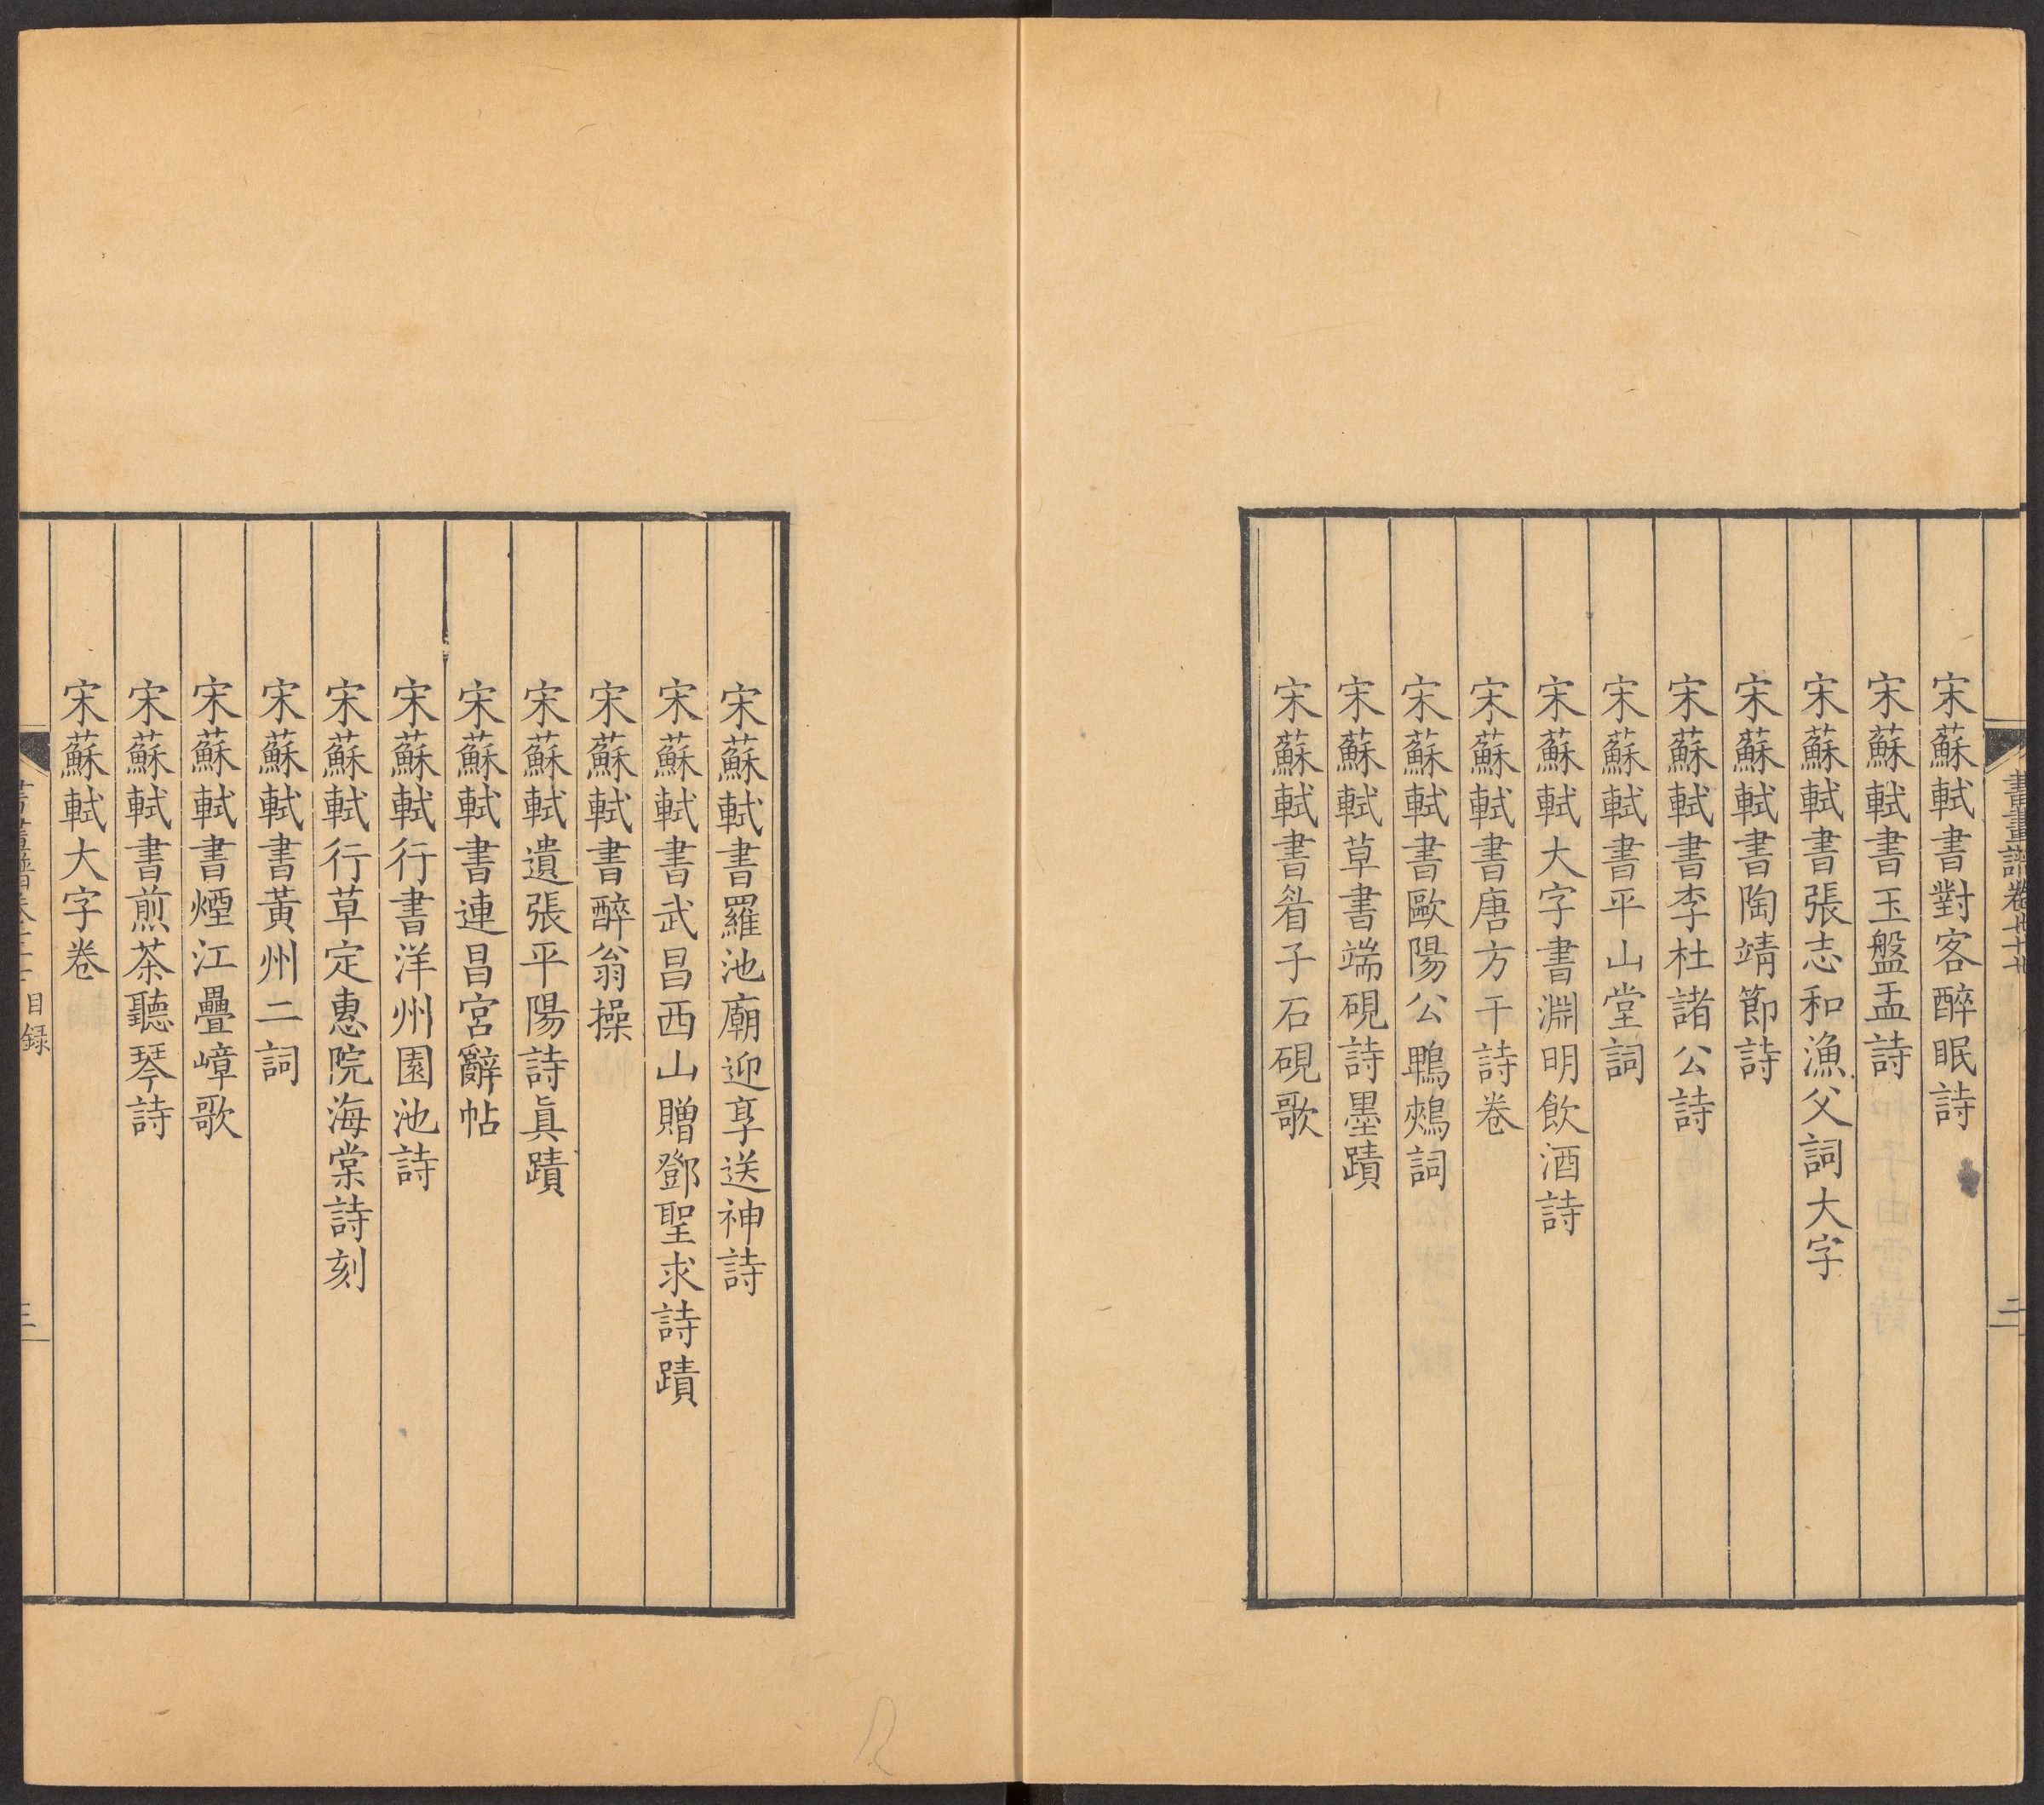 宋蘇軾書對客醉眠詩
宋蘇軾書玉盤盂詩
宋蘇軾書張志和漁父詞大字
宋蘇軾書陶靖節詩
宋蘇軾書李杜諸公詩
宋蘇軾書平山堂詞
宋蘇軾大字書淵明飲酒詩
宋蘇軾書唐方干詩卷
宋蘇軾書歐陽公鵯鵊詞
宋蘇軾草書端硯詩墨蹟
宋蘇軾書眢子石硯歌
宋蘇軾書羅池廟迎享送神詩
宋蘇軾書武昌西山贈鄧聖求詩蹟
宋蘇軾書醉翁操
宋蘇軾遺張平陽詩眞蹟
宋蘇軾書連昌宮辭帖
宋蘇軾行書洋州園池詩
宋蘇軾行草定惠院海棠詩刻
宋蘇軾書黃州二詞
宋蘇軾書煙江疊嶂歌
宋蘇軾書煎茶聽琴詩
宋蘇軾大字卷
目録
三